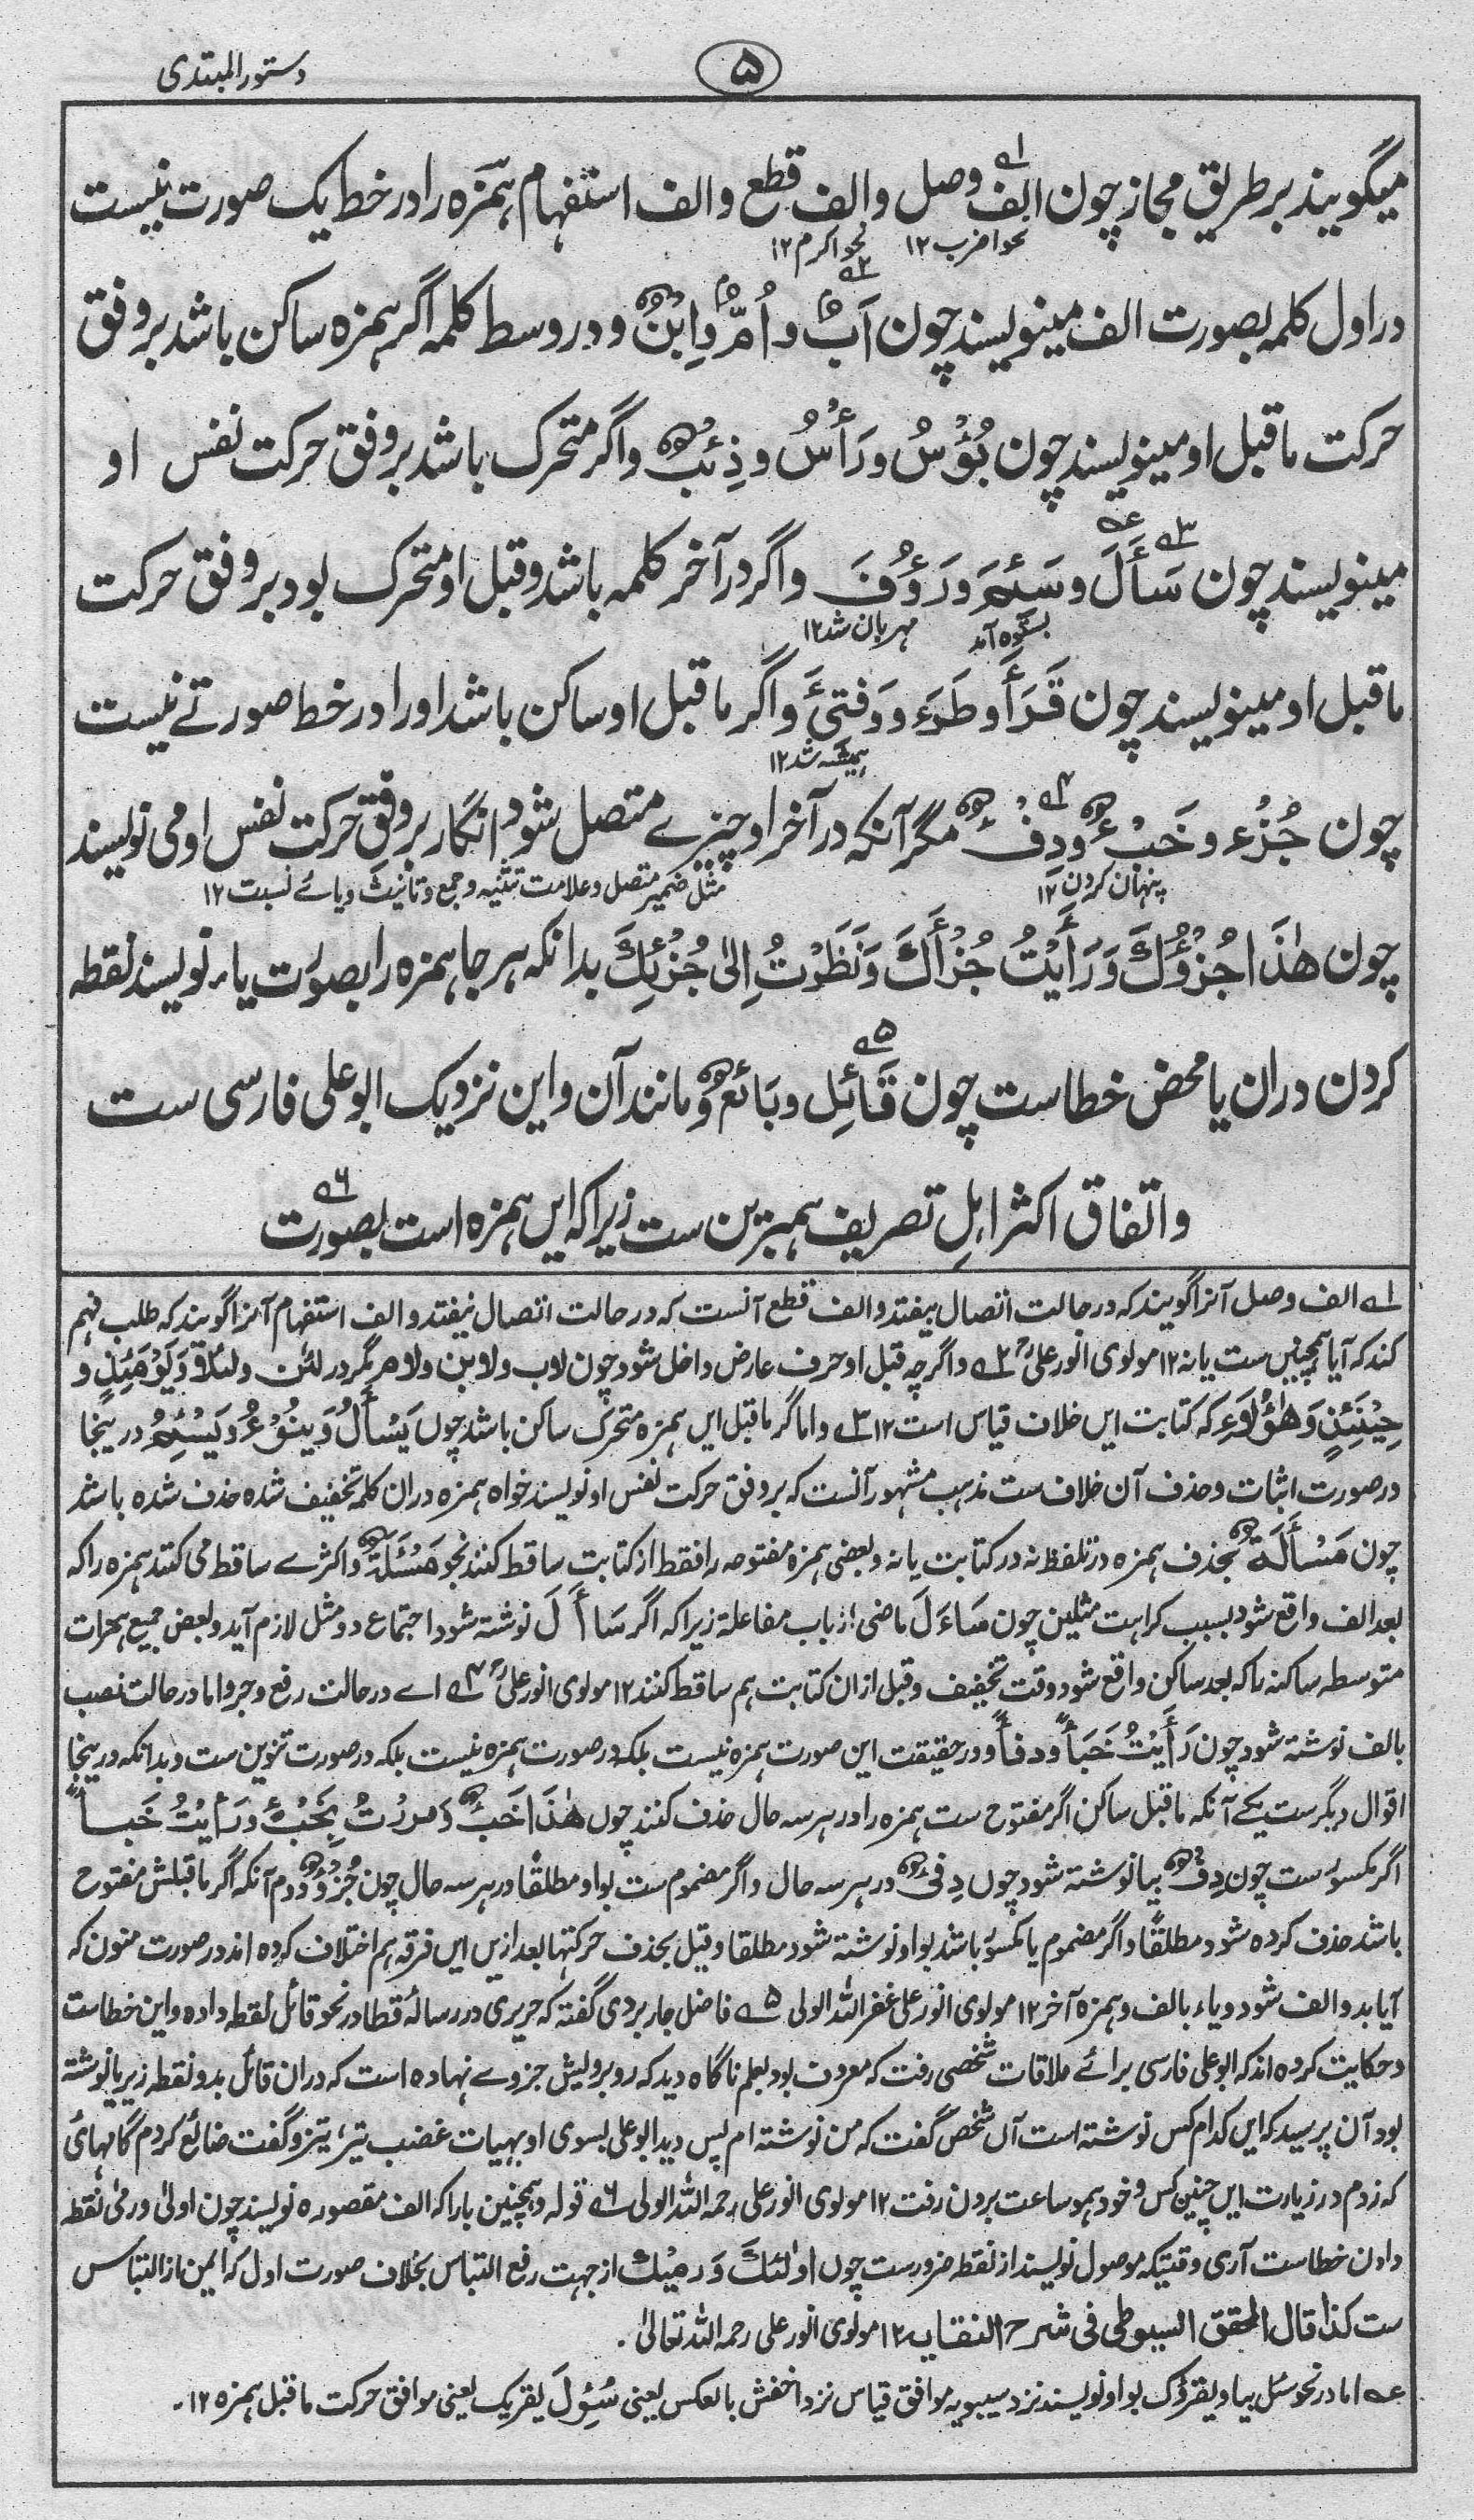 دستور المبتدی
۵
میگویند بر طریق مجاز چون الف وصل و الف قطع و الف استفہام ہمزہ را در خط یک صورت نیست
نحو اضرب ۱۲ نحو اکرم ۱۲
در اول کلمہ بصورت الف مینویسند چون اَبٌ و اُمٌّ و اِبْنٌ و در وسط کلمہ اگر ہمزہ ساکن باشد بر وفق
حرکت ماقبل او مینویسند چون بُؤْسٌ و رَأْسٌ و ذِئْبٌ و اگر متحرک باشد بر وفق حرکت نفس او
مینویسند چون سَأَلَ و سَئِمَ و رَؤُفَ و اگر در آخر کلمہ باشد و قبل او متحرک بود بر وفق حرکت
بستوہ آمد مہربان شد ۱۲
ماقبل او مینویسند چون قَرَأَ و طَرَءَ و فَتِئَ و اگر ماقبل او ساکن باشد او را در خط صورتے نیست
ہمیشہ شد ۱۲
چون جُزْء و خَبْءٌ و دِفْءٌ مگر آنکہ در آخر او چیزے متصل شود انگار بر وفق حرکت نفس او می نویسند
پنہان کردن ۱۲ مثل ضمیر متصل و علامت تثنیہ و جمع و تانیث و یائے نسبت ۱۲
چون ھٰذَا جُزْؤُكَ وَ رَأَيْتُ جُزْأَكَ وَ نَظَرْتُ اِلٰى جُزْئِكَ بدانکہ ہر جا ہمزہ را بصورت یاء نویسند نقطہ
کردن دران یا محض خطاست چون قَائِل و بَائِعٌ و مانند آن و این نزدیک ابو علی فارسی ست
و اتفاق اکثر اہلِ تصریف ہمبرین ست زیرا کہ ایں ہمزہ است بصورت
۱؎ الف وصل آنرا گویند کہ در حالت اتصال بیفتد و الف قطع آنست کہ در حالت اتصال نیفتد و الف استفہام آنرا گویند کہ طلب فہم
کند کہ آیا ہمچنیں ست یا نہ ۱۲ مولوی انور علیؒ ۲؎ و اگرچہ قبل او حرف عارض داخل شود چون لاب و لابن و لامر مگر در لئن و لئلا و یَوْمَئِذٍ و
حِیْنَئِذٍ وَ ھٰؤُلَاءِ کہ کتابت ایں خلاف قیاس است ۱۲ ۳؎ و اما گر ماقبل ایں ہمزہ متحرک ساکن باشد چوں یَسْأَلُ و یَنْؤُءُ و یَسْئِمُ دریںجا
در صورت اثبات و حذف آن خلاف ست مذہب مشہور آنست کہ بر وفق حرکت نفس او نویسند خواہ ہمزہ دران کلمہ تخفیف شدہ حذف شدہ باشد
چون مَسْأَلَةٌ بحذف ہمزہ در تلفظ نہ در کتابت یا نہ و بعضی ہمزہ مفتوحہ را فقط از کتابت ساقط کنند نحو مَسْئَلَةٌ و اکثرے ساقط می کنند ہمزہ را کہ
بعد الف واقع شود بسبب کراہت مثلین چون سَاءَلَ ماضی از باب مفاعلة زیرا کہ اگر سَاأَلَ نوشتہ شود اجتماع دو مثل لازم آید و بعض جمیع ہمزات
متوسطہ ساکنہ را کہ بعد ساکن واقع شود وقت تخفیف و قبل ازان کتابت ہم ساقط کنند ۱۲ مولوی انور علیؒ ۴؎ اے در حالت رفع و جر و اما در حالت نصب
بالف نوشتہ شود چون رَأَيْتُ خَبَأً و دفأً و در حقیقت این صورت ہمزہ نیست بلکہ در صورت ہمزہ نیست بلکہ در صورت تنوین ست و بدانکہ دریںجا
اقوال دیگر ست یکے آنکہ ماقبل ساکن اگر مفتوح ست ہمزہ را در ہر سہ حال حذف کنند چوں ھٰذَا خَبْءٌ و مررتُ بِخَبْءٍ و رَأَيْتُ خَبـاً
اگر مکسور ست چون دِفْءٌ بیا نوشتہ شود چوں دِفْیٌ در ہر سہ حال و اگر مضموم ست بواو مطلقًا در ہر سہ حال چون جُزْوٌ دوم آنکہ اگر ماقبلش مفتوح
باشد حذف کردہ شود مطلقًا و اگر مضموم یا مکسور باشد بواو نوشتہ شود مطلقا و قیل بحذف حرکتہا بعد ازیں ایں فرقہ ہم اختلاف کردہ اند در صورت منون کہ
آیا بدو الف شود و یاء بالف و ہمزہ آخر ۱۲ مولوی انور علی غفر اللہ الولی ۵؎ فاضل جاربردی گفتہ کہ حریری در رسالۂ قطا در نحو قائل نقطہ دادہ و این خطاست
و حکایت کردہ اند کہ ابو علی فارسی برائے ملاقات شخصی رفت کہ معروف بود بعلم ناگاہ دید کہ روبرویش جزوے نہادہ است کہ دران قائل بدو نقطہ زیر یا نوشتہ
بود آن پرسید کہ ایں کدام کس نوشتہ است آں شخص گفت کہ من نوشتہ ام پس دید ابو علی بسوی او بہیأت غضب تیز تیز و گفت ضائع کردم گامہائی
کہ زدم در زیارت ایں چنین کس و خود ہموساعت برون رفت ۱۲ مولوی انور علی رحمہ اللہ الولی ۶؎ قولہ و ہمچنین یا را کہ الف مقصورہ نویسند چون اولیٰ و رمیٰ نقطہ
دادن خطاست آری وقتیکہ موصول نویسند از نقطہ ضرورست چوں اولٰئك وَ رمیك از جہت رفع التباس بخلاف صورت اول کہ ایمن از التباس
ست کذا قال المحقق السیوطی فی شرح النقایہ ۱۲ مولوی انور علی رحمہ اللہ تعالیٰ۔
عہ اما در نحو سئل بیا و یقرؤک بواو نویسند نزد سیبویہ موافق قیاس نزد اخفش بالعکس یعنی سُئِولَ یقریک یعنی موافق حرکت ماقبل ہمزہ ۱۲۔